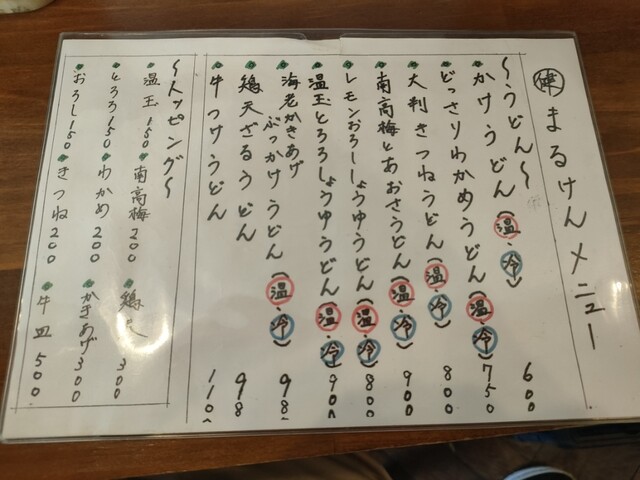 健 まるけんメニュー
〜うどん〜
かけうどん（温・冷） 600
どっさりわかめうどん（温・冷） 750
大判きつねうどん（温・冷） 800
南高梅とあおさうどん（温・冷） 900
レモンおろししょうゆうどん（温・冷） 800
温玉とろろしょうゆうどん（温・冷） 900
海老かきあげ
ぶっかけうどん（温・冷） 98
鶏天ざるうどん 98
牛つけうどん 110
〜トッピング〜
温玉 150 南高梅 200 鶏天 300
とろろ 150 わかめ 200 かきあげ 300
おろし 150 きつね 200 牛皿 500